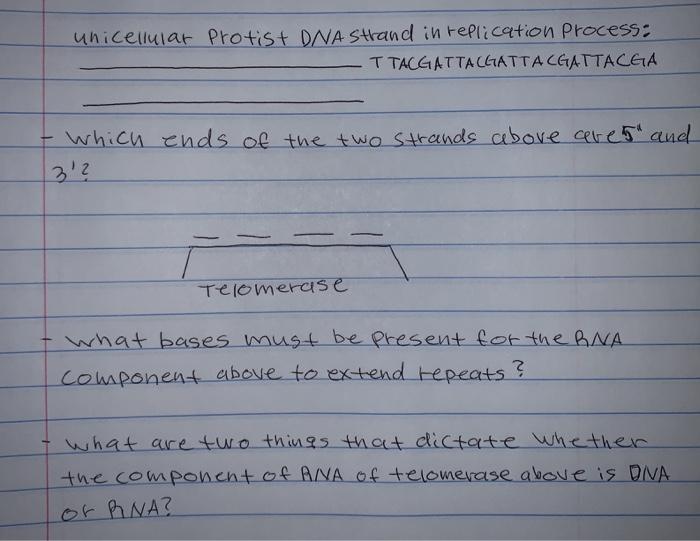 unicellular Protist DNA strand in replication process:
T TACGATTACGATTACGATTACGA
- which ends of the two strands above are 5' and
3'?
Telomerase
- what bases must be present for the RNA
component above to extend repeats?
- what are two things that dictate whether
the component of RNA of telomerase above is DNA
or RNA?